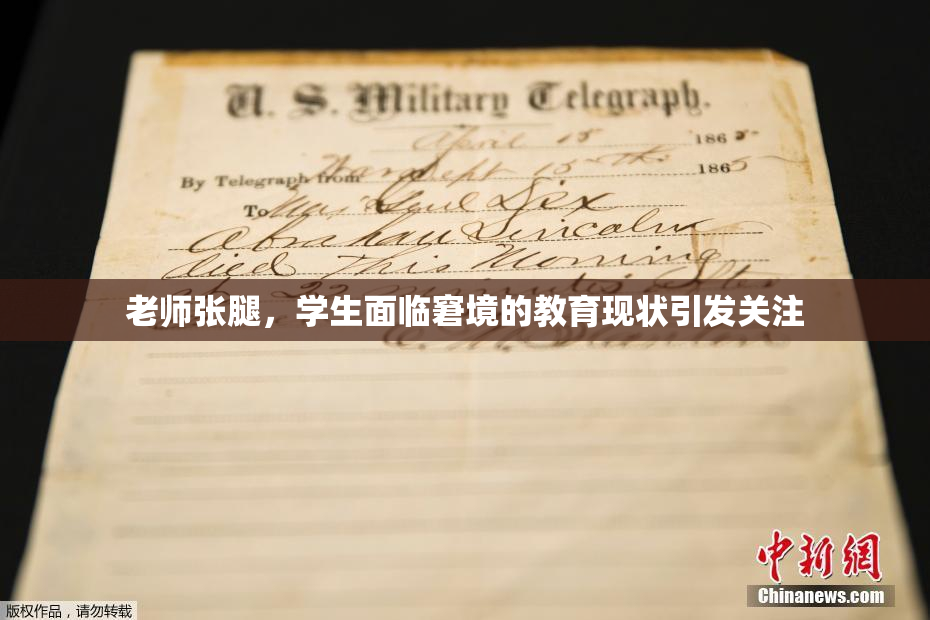 U. S. Military Telegraph.
April 15 1865
By Telegraph from War Dept 15th 1865
To Maj Genl Dix
Abraham Lincoln
died This Morning
at 22 minutes after
老师张腿，学生面临窘境的教育现状引发关注
E. M. Stanton
中新網
Chinanews.com
版权作品，请勿转载